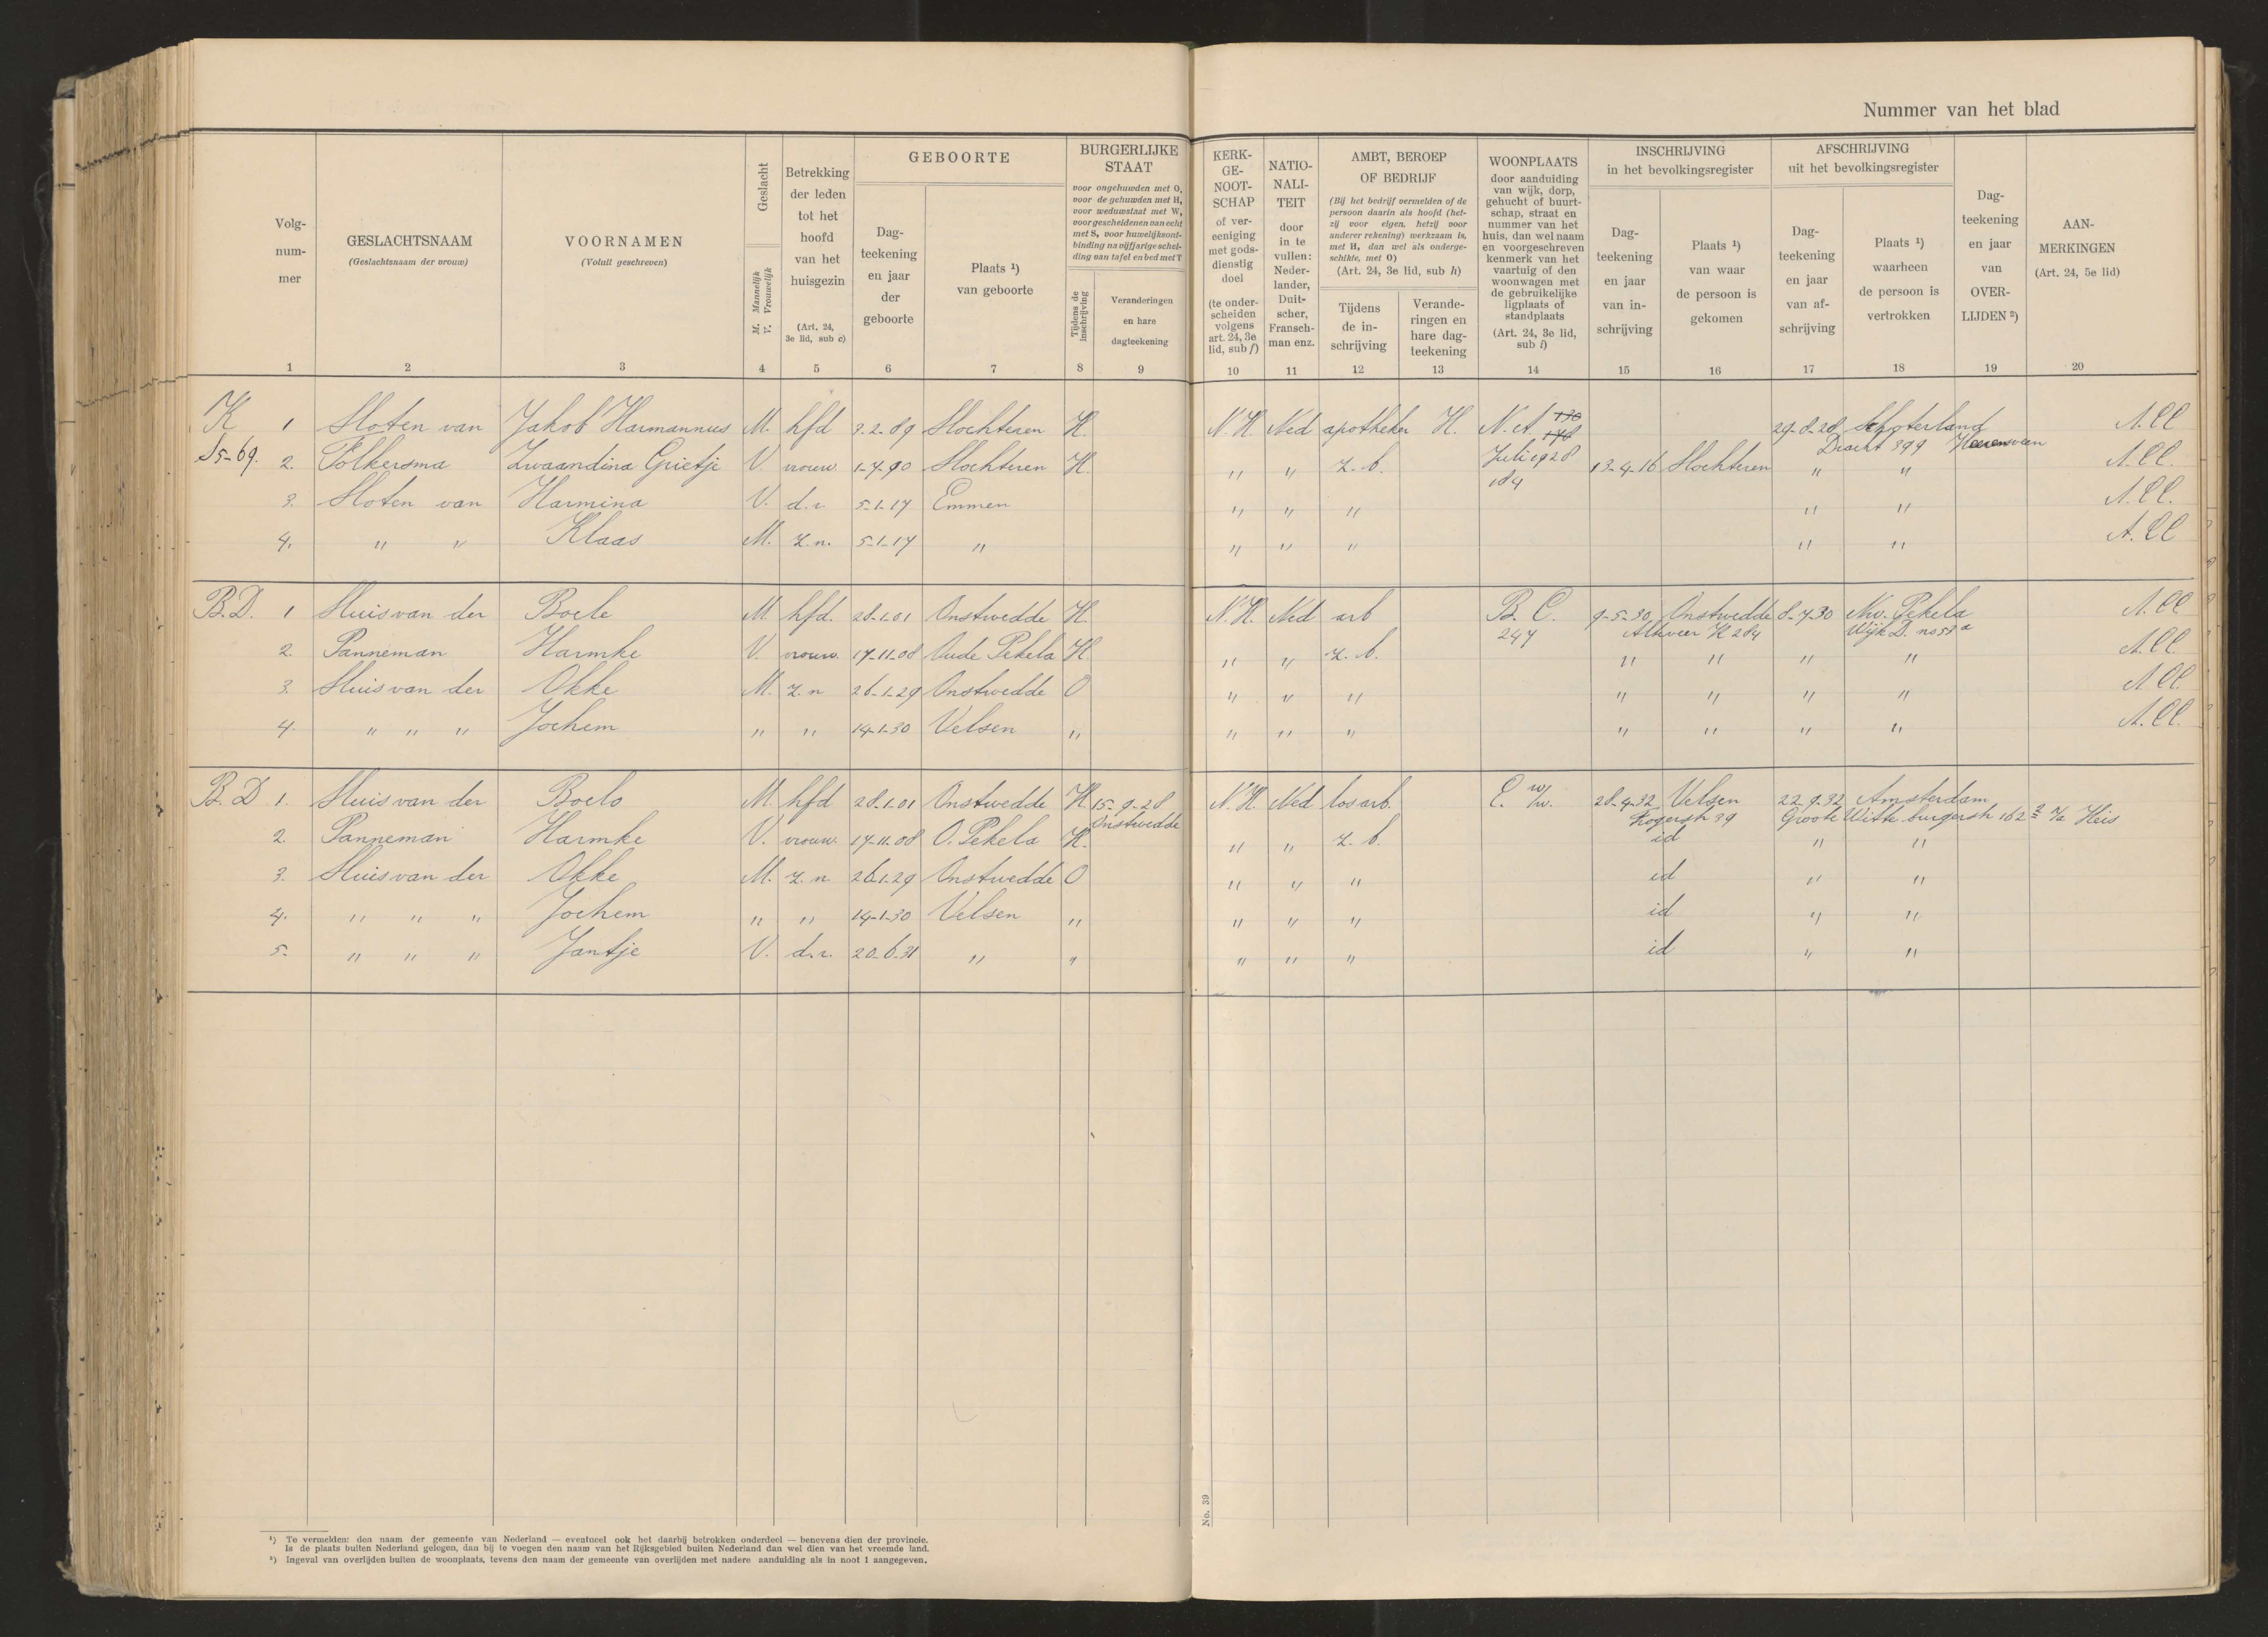 Nummer van het blad
Volg-
num-
mer
1
GESLACHTSNAAM
(Geslachtsnaam der vrouw)
2
VOORNAMEN
(Voluit geschreven)
3
Geslacht
M. Mannelijk
V. Vrouwelijk
4
Betrekking
der leden
tot het
hoofd
van het
huisgezin
(Art. 24,
3e lid, sub c)
5
GEBOORTE
Dag-
teekening
en jaar
der
geboorte
6
Plaats ¹)
van geboorte
7
BURGERLIJKE
STAAT
voor ongehuwden met O,
voor de gehuwden met H,
voor weduwstaat met W,
voor gescheidenen van echt
met S, voor huwelijksont-
binding na vijfjarige schei-
ding van tafel en bed met T
Tijdens de
inschrijving
8
Veranderingen
en hare
dagteekening
9
KERK-
GE-
NOOT-
SCHAP
of ver-
eeniging
met gods-
dienstig
doel
(te onder-
scheiden
volgens
art. 24, 3e
lid, sub f)
10
NATIO-
NALI-
TEIT
door
in te
vullen:
Neder-
lander,
Duit-
scher,
Fransch-
man enz.
11
AMBT, BEROEP
OF BEDRIJF
(Bij het bedrijf vermelden of de
persoon daarin als hoofd (het-
zij voor eigen, hetzij voor
anderer rekening) werkzaam is,
met H, dan wel als onderge-
schikte, met O)
(Art. 24, 3e lid, sub h)
Tijdens
de in-
schrijving
12
Verande-
ringen en
hare dag-
teekening
13
WOONPLAATS
door aanduiding
van wijk, dorp,
gehucht of buurt-
schap, straat en
nummer van het
huis, dan wel naam
en voorgeschreven
kenmerk van het
vaartuig of den
woonwagen met
de gebruikelijke
ligplaats of
standplaats
(Art. 24, 3e lid,
sub i)
14
INSCHRIJVING
in het bevolkingsregister
Dag-
teekening
en jaar
van in-
schrijving
15
Plaats ¹)
van waar
de persoon is
gekomen
16
AFSCHRIJVING
uit het bevolkingsregister
Dag-
teekening
en jaar
van af-
schrijving
17
Plaats ¹)
waarheen
de persoon is
vertrokken
18
Dag-
teekening
en jaar
van
OVER-
LIJDEN ²)
19
AAN-
MERKINGEN
(Art. 24, 5e lid)
20
K 1 Sloten van Jakob Harmannus M. hfd 3-2-89 Slochteren H. N.H. Ned apotheker H. N.A. 130 29-8-28 Schoterland A.Cl
178 Dracht 399 Heerenveen
S5-69. 2. Folkersma Zwaandina Grietje V. vrouw. 1-7-90 Slochteren H. " " z.b. Juli 1928 13-4-16 Slochteren " " A.Cl.
184
3. Sloten van Harmina V. d.r. 5-1-17 Emmen " " " " " A.Cl.
4. " " Klaas M. z.n. 5-1-17 " " " " " " A.Cl
B.D. 1 Sluis van der Boele M. hfd. 28-1-01 Onstwedde H. N.H. Ned arb B.C. 9-5-30 Onstwedde 8-7-30 Nw. Pekela A.Cl
247 Alteveer H 284 Wijk D. no 53a
2. Panneman Harmke V. vrouw. 17-11-08 Oude Pekela H " " z.b. " " " " A.Cl.
3. Sluis van der Okke M. z.n 26-1-29 Onstwedde O " " " " " " " A.Cl.
4. " " " Jochem " " 14-1-30 Velsen " " " " " " " " A.Cl.
B.D 1. Sluis van der Boelo M. hfd 28-1-01 Onstwedde H. 15-9-28 N.H. Ned los arb. E. w/w. 28-4-32 Velsen 22-9-32 Amsterdam
Onstwedde 39 Groote Wittenburgerstr 162 Heis
2. Panneman Harmke V. vrouw. 17-11-08 O. Pekela H. " " z.b. id " "
3. Sluis van der Okke M. z.n 26-1-29 Onstwedde O " " " id " "
4. " " " Jochem " " 14-1-30 Velsen " " " " id " "
5. " " " Jantje V. d.r. 20-6-31 " " " " " id " "
No. 39
¹) Te vermelden: den naam der gemeente van Nederland — eventueel ook het daarbij betrokken onderdeel — benevens dien der provincie.
Is de plaats buiten Nederland gelegen, dan bij te voegen den naam van het Rijksgebied buiten Nederland dan wel dien van het vreemde land.
²) Ingeval van overlijden buiten de woonplaats, tevens den naam der gemeente van overlijden met nadere aanduiding als in noot 1 aangegeven.